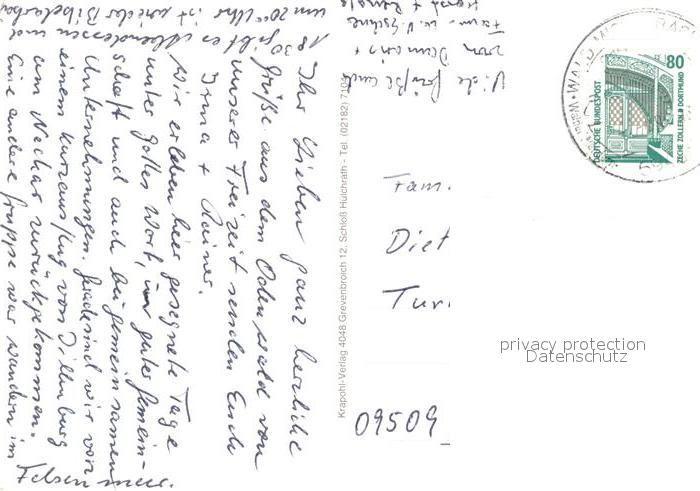 Ihr Lieben ganz herzliche
Grüße aus dem Odenwald von
unserer Freizeit senden Euch
Irma + Rainer.
Wir erleben hier gesegnete Tage
unter Gottes Wort, in guter Gemein-
schaft und auch bei gemeinsamen
Unternehmungen. Gerade sind wir von
einem Kurzausflug von Dillenburg
am Neckar zurückgekommen.
Eine andere Gruppe war wandern im
Felsenmeer.
18 30 gibt es Abendessen und
um 20 00 Uhr ist wieder Bibelarbeit
Viele Grüße auch
von
Fam.
Horst +
Krapohl-Verlag 4048 Grevenbroich 12, Schloß Hülchrath - Tel. (02182)
Fam.
Diet
Tur
09509
80
DEUTSCHE BUNDESPOST
ZECHE ZOLLERN II DORTMUND
WALD-MI
privacy protection
Datenschutz